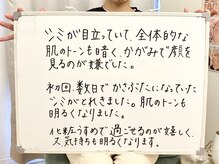 シミが目立っていて、全体的な
肌のトーンも暗く、かがみで顔を
見るのが嫌でした。
初回、数日でかさぶたになっていた
シミがとれきました。肌のトーンも
明るくなりました。
化粧うすめで過ごせるのが嬉しく、
又気持ちも明るくなります。